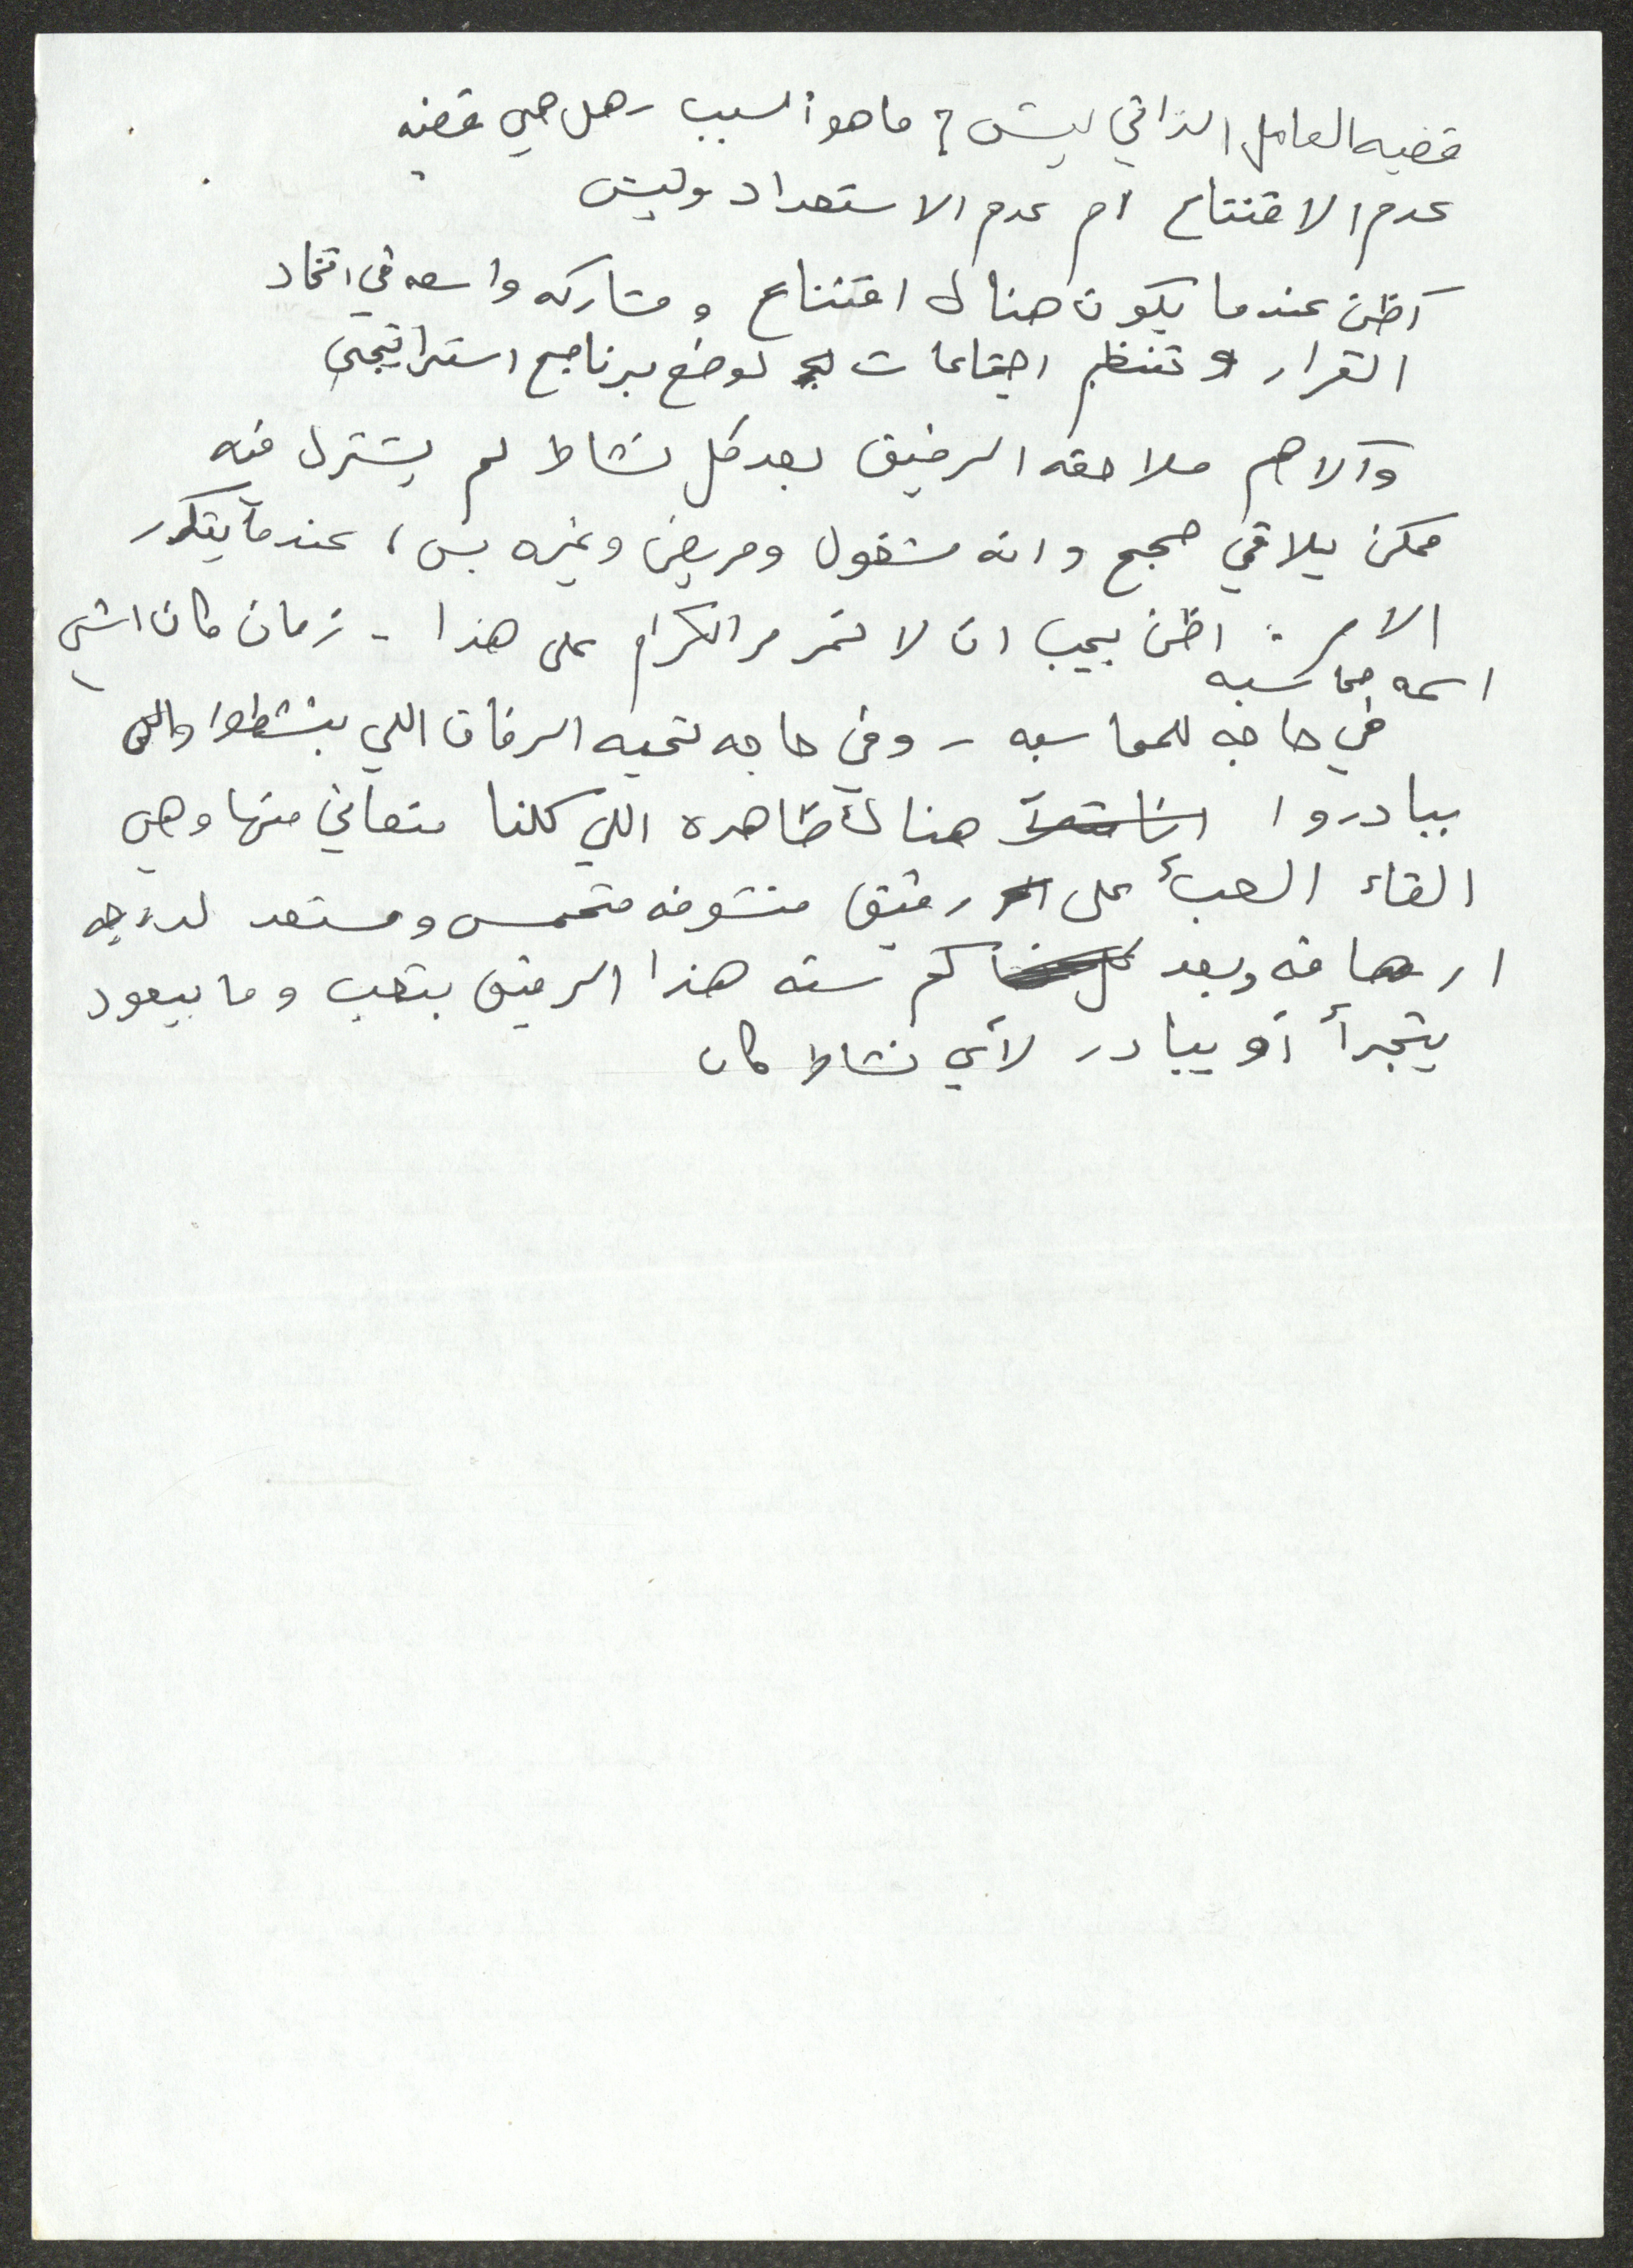 قضيه العامل الذاتي ليش ؟ ما هو السبب . هل هي قضيه
عدم الاقتناع ام عدم الاستعداد وليش
أظن عندما يكون هناك اقتناع ومشاركه واسعه في اتخاد
القرار وتنظم اجتماعات لوضع برنامج استراتيجي
وألاهم ملاحقه الرفيق بعد كل نشاط لم يشترك فيه
ممكن يلاقي حجج وانه مشغول ومريض وغيره بس ، عندما يتكرر
الامر . اظن يجب ان لا نمر مر الكرام على هذا - زمان كان اشي
اسمه محاسبه
في حاجه للمحاسبه - وفي حاجه لتحيه الرفاق اللي بنشطوا واللي
ببادروا هناك ظاهره اللي كلنا منعاني منها وهي
القاء العبأ على رفيق منشوفه متحمس ومستعد لدرجه
ارهاقه وبعد كم سنه هذا الرفيق بتعب وما بيعود
يتجرأ أو يبادر لأي نشاط كان